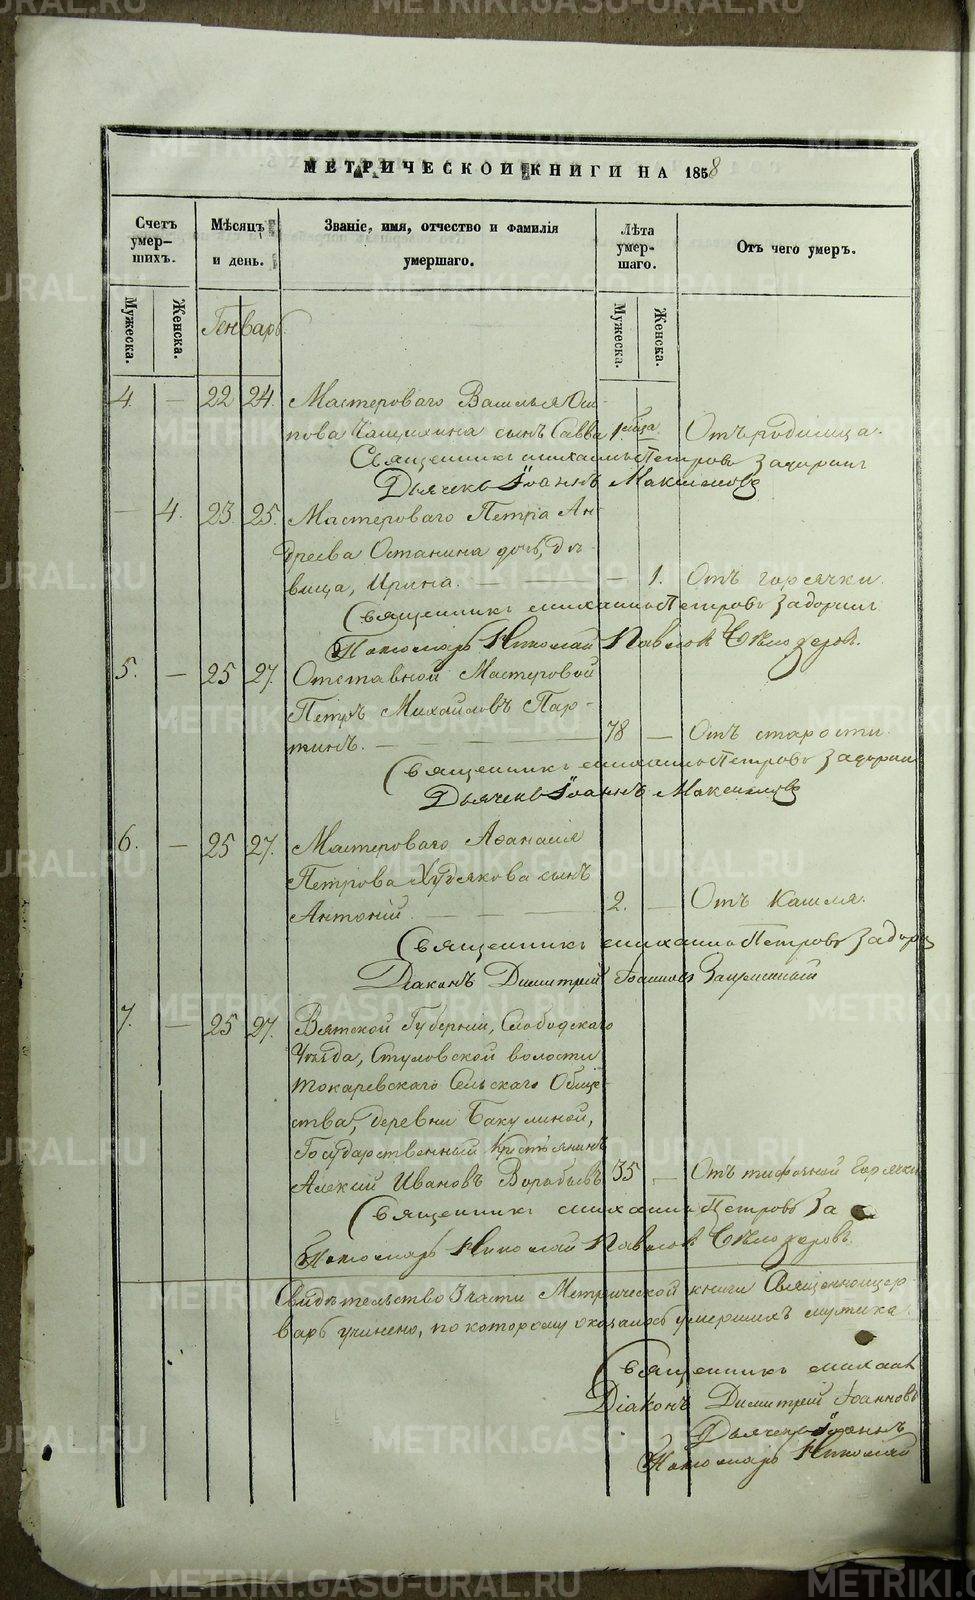 МЕТРИЧЕСКОЙ КНИГИ НА 1858
Счетъ умер-шихъ.
Мѣсяцъ и день.
Званіе, имя, отчество и фамилія умершаго.
Лѣта умер-шаго.
Отъ чего умеръ.
Мужеска.
Женска.
Генварь.
Мужеска.
Женска.
4. — 22 24. Мастероваго Василья Оси-
пова сынъ Савва 1. мѣсяца Отъ родимца.
Священникъ Михаилъ Петровъ Задоринъ
Дьячекъ Іоаннъ Максимовъ
— 4. 23 25. Мастероваго Петра Ан-
дреева Останина дочь, дѣ-
вица, Ирина. — — — 1. Отъ горячки.
Священникъ Михаилъ Петровъ Задоринъ
Пономарь Николай Павловъ Бѣлозеровъ.
5. — 25 27. Отставной Мастеровой
Петръ Михайловъ Пар-
тинъ. — 78 — Отъ старости.
Священникъ Михаилъ Петровъ Задорин
Дьячекъ Іоаннъ Максимовъ
6. — 25 27. Мастероваго Аѳанасія
Петрова Худякова сынъ
Антоній. — — — 2. — Отъ кашля.
Священникъ Михаилъ Петровъ Задори
Діаконъ Димитрій Іоанновъ
7. — 25 27. Вятской Губерніи, Слободскаго
Уѣзда, Стуловской волости
Токаревскаго Сельскаго Обще-
ства, деревни Бакулиной,
Государственный крестьянинъ
Алексій Ивановъ Воробьевъ 35 — Отъ тифозной горячки
Священникъ Михаилъ Петровъ За
Пономарь Николай Павловъ Бѣлозеровъ.
Свидѣтельство 3 части Метрической книги Священноцер
варь учинено, по которому оказалось умершихъ мужска
Священникъ Михаил
Діаконъ Димитрій Іоанновъ
Дьячекъ Іоаннъ
Пономарь Николай
METRIKI.GASO-URAL.RU